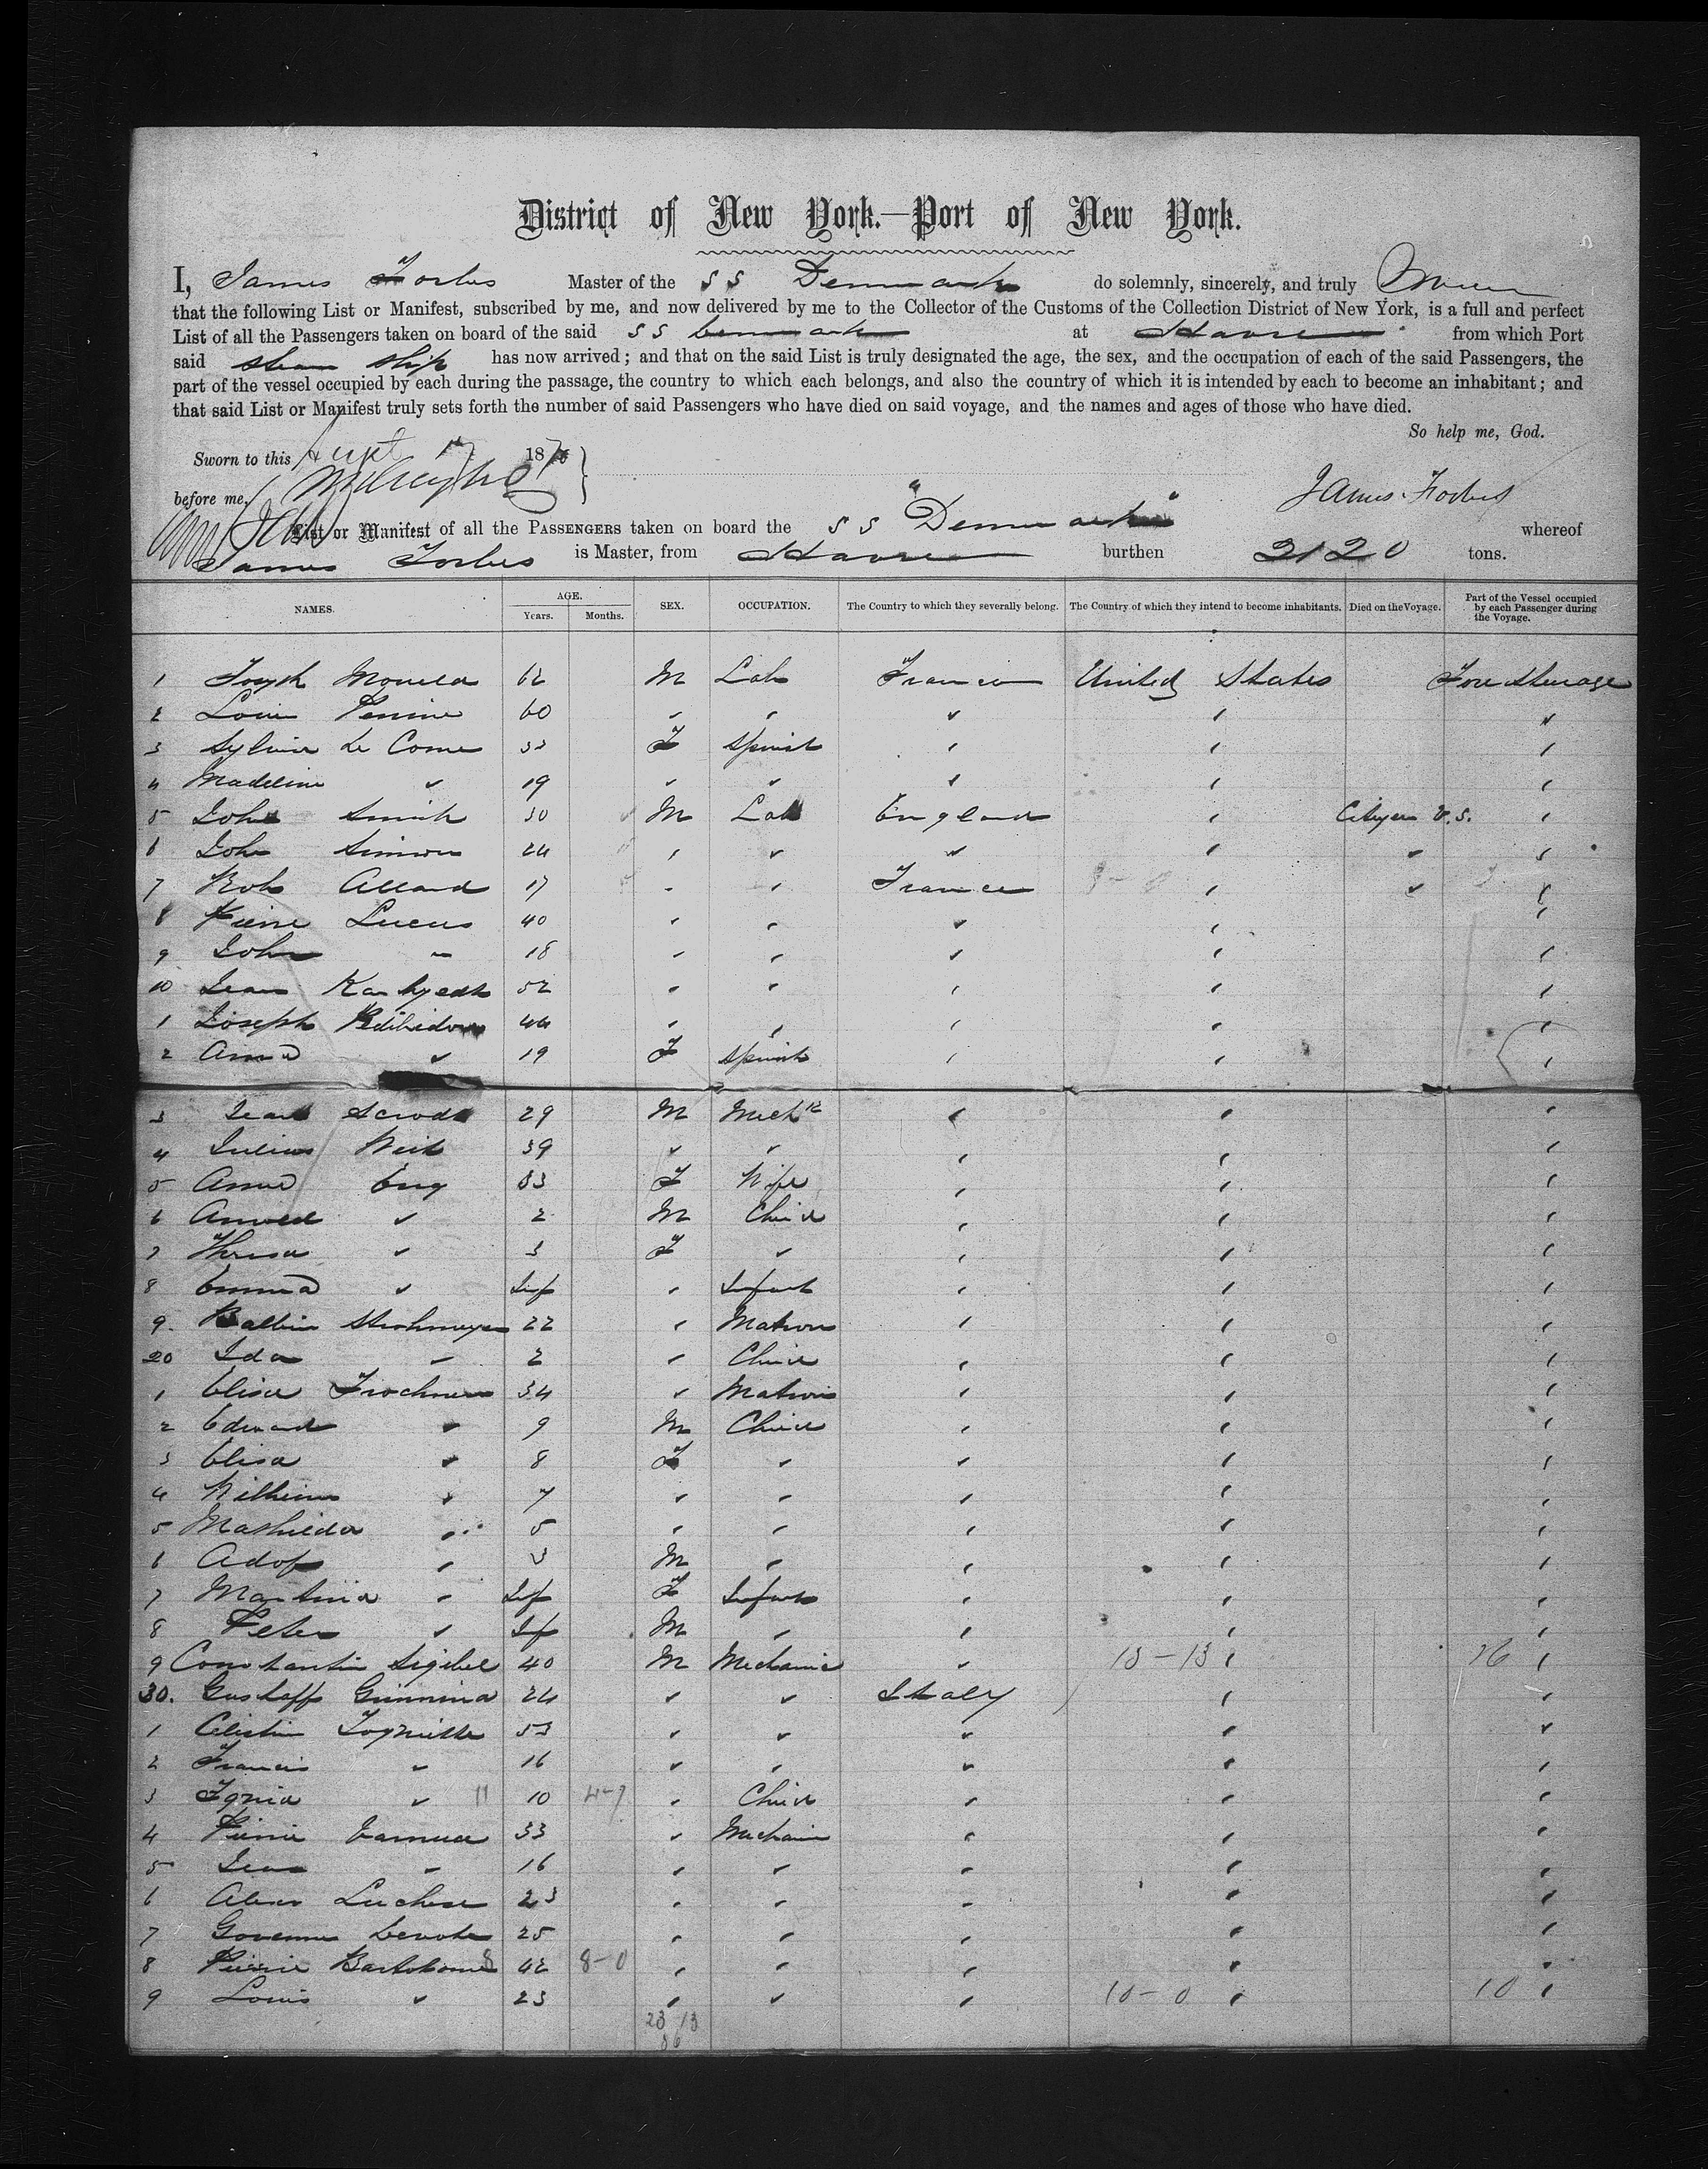 District of New York.—Port of New York.
I, James Forbes Master of the S S Denmark do solemnly, sincerely, and truly Swear
that the following List or Manifest, subscribed by me, and now delivered by me to the Collector of the Customs of the Collection District of New York, is a full and perfect
List of all the Passengers taken on board of the said S S Denmark at Havre from which Port
said Steam Ship has now arrived; and that on the said List is truly designated the age, the sex, and the occupation of each of the said Passengers, the
part of the vessel occupied by each during the passage, the country to which each belongs, and also the country of which it is intended by each to become an inhabitant; and
that said List or Manifest truly sets forth the number of said Passengers who have died on said voyage, and the names and ages of those who have died.
So help me, God.
Sworn to this Sept 18
before me, James Forbes
List or Manifest of all the PASSENGERS taken on board the S S "Denmark" whereof
James Forbes is Master, from Havre burthen 2120 tons.
NAMES. AGE. Years. Months. SEX. OCCUPATION. The Country to which they severally belong. The Country of which they intend to become inhabitants. Died on the Voyage. Part of the Vessel occupied by each Passenger during the Voyage.
1 Joseph 62 M Lab France United States Fore Steerage
2 Louis Perrine 60 " " " " "
3 Sylvia Le Come 33 F Spinst " " "
4 Madeline " 19 " " " " "
5 John Smith 30 M Lab England " Citizen U.S. "
6 John Simson 24 " " " " " "
7 Rob Allard 17 " " France " " "
8 Pierre Lucus 40 " " " " "
9 John " 18 " " " " "
10 Jean 52 " " " " "
1 Joseph 44 " " " " "
2 Anna " 19 F Spinst " " "
3 Jean 29 M Mech " " "
4 Julius Weit 39 " " " " "
5 Anna Eng 33 F Wife " " "
6 " 2 M Child " " "
7 Theresa " 3 F " " " "
8 Emma " Inf " Infant " " "
9 Balbin Strohmeyer 22 " Matron " " "
20 Ida " 2 " Child " " "
1 Elise Frochner 34 " Matron " " "
2 Edward " 9 M Child " " "
3 Elisa " 8 F " " " "
4 Wilhelm " 7 " " " " "
5 Mathilda " 5 " " " " "
6 Adolf " 3 M " " " "
7 Martina " Inf F Infant " " "
8 Peter " Inf M " " " "
9 Constantin Sigibel 40 M Mechanic " 13-13 " "
30. Gustaff Grinnina 24 " " Italy " "
1 Celestin 53 " " " " "
2 Francis " 16 " " " " "
3 " 11 10 4-7 " Child " " "
4 Pierre 33 " Mechanic " " "
5 Jean " 16 " " " " "
6 Luchese 23 " " " " "
7 Devoto 25 " " " " "
8 Pierre Bartolome 42 8-0 " " " " "
9 Louis " 23 " " " 10-0 " 10 "
23 13